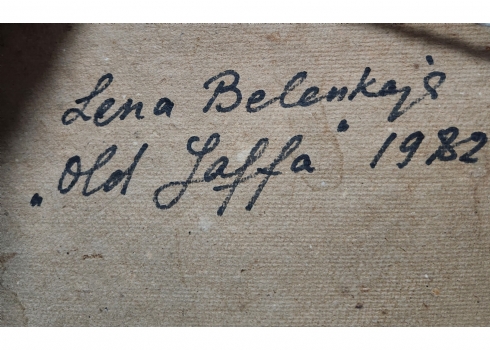 Lena Belenkaja
„Old Jaffa" 1982